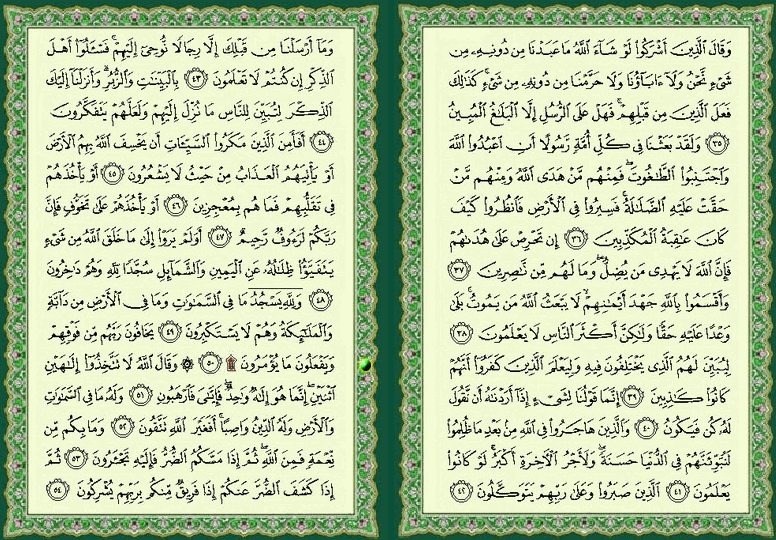 وَقَالَ ٱلَّذِينَ أَشْرَكُوا۟ لَوْ شَآءَ ٱللَّهُ مَا عَبَدْنَا مِن دُونِهِۦ مِن
شَىْءٍ نَّحْنُ وَلَآ ءَابَآؤُنَا وَلَا حَرَّمْنَا مِن دُونِهِۦ مِن شَىْءٍ ۚ كَذَٰلِكَ
فَعَلَ ٱلَّذِينَ مِن قَبْلِهِمْ ۚ فَهَلْ عَلَى ٱلرُّسُلِ إِلَّا ٱلْبَلَٰغُ ٱلْمُبِينُ
﴿٣٥﴾ وَلَقَدْ بَعَثْنَا فِى كُلِّ أُمَّةٍ رَّسُولًا أَنِ ٱعْبُدُوا۟ ٱللَّهَ
وَٱجْتَنِبُوا۟ ٱلطَّٰغُوتَ ۖ فَمِنْهُم مَّنْ هَدَى ٱللَّهُ وَمِنْهُم مَّنْ
حَقَّتْ عَلَيْهِ ٱلضَّلَٰلَةُ ۚ فَسِيرُوا۟ فِى ٱلْأَرْضِ فَٱنظُرُوا۟ كَيْفَ
كَانَ عَٰقِبَةُ ٱلْمُكَذِّبِينَ ﴿٣٦﴾ إِن تَحْرِصْ عَلَىٰ هُدَىٰهُمْ
فَإِنَّ ٱللَّهَ لَا يَهْدِى مَن يُضِلُّ ۖ وَمَا لَهُم مِّن نَّٰصِرِينَ ﴿٣٧﴾
وَأَقْسَمُوا۟ بِٱللَّهِ جَهْدَ أَيْمَٰنِهِمْ ۙ لَا يَبْعَثُ ٱللَّهُ مَن يَمُوتُ ۚ بَلَىٰ
وَعْدًا عَلَيْهِ حَقًّا وَلَٰكِنَّ أَكْثَرَ ٱلنَّاسِ لَا يَعْلَمُونَ ﴿٣٨﴾
لِيُبَيِّنَ لَهُمُ ٱلَّذِى يَخْتَلِفُونَ فِيهِ وَلِيَعْلَمَ ٱلَّذِينَ كَفَرُوٓا۟ أَنَّهُمْ
كَانُوا۟ كَٰذِبِينَ ﴿٣٩﴾ إِنَّمَا قَوْلُنَا لِشَىْءٍ إِذَآ أَرَدْنَٰهُ أَن نَّقُولَ
لَهُۥ كُن فَيَكُونُ ﴿٤٠﴾ وَٱلَّذِينَ هَاجَرُوا۟ فِى ٱللَّهِ مِنۢ بَعْدِ مَا ظُلِمُوا۟
لَنُبَوِّئَنَّهُمْ فِى ٱلدُّنْيَا حَسَنَةً ۖ وَلَأَجْرُ ٱلْءَاخِرَةِ أَكْبَرُ ۚ لَوْ كَانُوا۟
يَعْلَمُونَ ﴿٤١﴾ ٱلَّذِينَ صَبَرُوا۟ وَعَلَىٰ رَبِّهِمْ يَتَوَكَّلُونَ ﴿٤٢﴾
وَمَآ أَرْسَلْنَا مِن قَبْلِكَ إِلَّا رِجَالًا نُّوحِىٓ إِلَيْهِمْ ۚ فَسْـَٔلُوٓا۟ أَهْلَ
ٱلذِّكْرِ إِن كُنتُمْ لَا تَعْلَمُونَ ﴿٤٣﴾ بِٱلْبَيِّنَٰتِ وَٱلزُّبُرِ ۗ وَأَنزَلْنَآ إِلَيْكَ
ٱلذِّكْرَ لِتُبَيِّنَ لِلنَّاسِ مَا نُزِّلَ إِلَيْهِمْ وَلَعَلَّهُمْ يَتَفَكَّرُونَ
﴿٤٤﴾ أَفَأَمِنَ ٱلَّذِينَ مَكَرُوا۟ ٱلسَّيِّـَٔاتِ أَن يَخْسِفَ ٱللَّهُ بِهِمُ ٱلْأَرْضَ
أَوْ يَأْتِيَهُمُ ٱلْعَذَابُ مِنْ حَيْثُ لَا يَشْعُرُونَ ﴿٤٥﴾ أَوْ يَأْخُذَهُمْ
فِى تَقَلُّبِهِمْ فَمَا هُم بِمُعْجِزِينَ ﴿٤٦﴾ أَوْ يَأْخُذَهُمْ عَلَىٰ تَخَوُّفٍ فَإِنَّ
رَبَّكُمْ لَرَءُوفٌ رَّحِيمٌ ﴿٤٧﴾ أَوَلَمْ يَرَوْا۟ إِلَىٰ مَا خَلَقَ ٱللَّهُ مِن شَىْءٍ
يَتَفَيَّؤُا۟ ظِلَٰلُهُۥ عَنِ ٱلْيَمِينِ وَٱلشَّمَآئِلِ سُجَّدًا لِّلَّهِ وَهُمْ دَٰخِرُونَ
﴿٤٨﴾ وَلِلَّهِ يَسْجُدُ مَا فِى ٱلسَّمَٰوَٰتِ وَمَا فِى ٱلْأَرْضِ مِن دَآبَّةٍ
وَٱلْمَلَٰٓئِكَةُ وَهُمْ لَا يَسْتَكْبِرُونَ ﴿٤٩﴾ يَخَافُونَ رَبَّهُم مِّن فَوْقِهِمْ
وَيَفْعَلُونَ مَا يُؤْمَرُونَ ۩ ﴿٥٠﴾ ۞ وَقَالَ ٱللَّهُ لَا تَتَّخِذُوٓا۟ إِلَٰهَيْنِ
ٱثْنَيْنِ ۖ إِنَّمَا هُوَ إِلَٰهٌ وَٰحِدٌ ۖ فَإِيَّٰىَ فَٱرْهَبُونِ ﴿٥١﴾ وَلَهُۥ مَا فِى ٱلسَّمَٰوَٰتِ
وَٱلْأَرْضِ وَلَهُ ٱلدِّينُ وَاصِبًا ۚ أَفَغَيْرَ ٱللَّهِ تَتَّقُونَ ﴿٥٢﴾ وَمَا بِكُم مِّن
نِّعْمَةٍ فَمِنَ ٱللَّهِ ۖ ثُمَّ إِذَا مَسَّكُمُ ٱلضُّرُّ فَإِلَيْهِ تَجْـَٔرُونَ ﴿٥٣﴾ ثُمَّ
إِذَا كَشَفَ ٱلضُّرَّ عَنكُمْ إِذَا فَرِيقٌ مِّنكُم بِرَبِّهِمْ يُشْرِكُونَ ﴿٥٤﴾